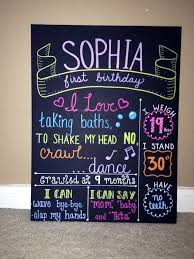 SOPHIA
first birthday
I Love
taking baths,
TO SHAKE MY HEAD NO,
crawl...
...dance
crawled at 9 months
I CAN
wave bye-bye
clap my hands
I CAN SAY
"MOM," baby
and "Teta"
I WEIGH
19 lbs
I STAND
30"
I HAVE
no teeth